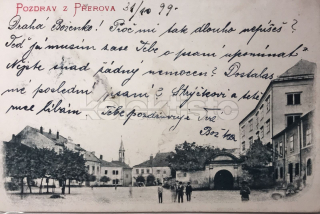 POZDRAV Z PŘEROVA 31/10 99.
Drahá Boženko! Proč mi tak dlouho nepíšeš?
Teď já musím zase Tebe o psaní upomínat
Nejste snad žádný nemocen? Dostalas
mé poslední psaní? Strýčkovi a tetě
ruce líbám. Tebe pozdravuje Tvá